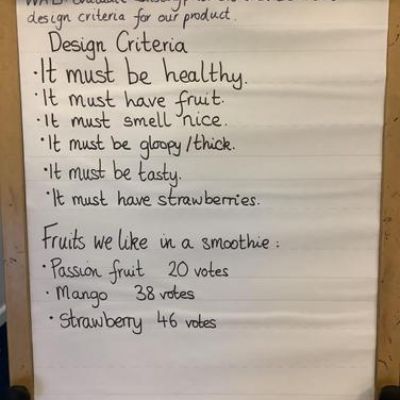 design criteria for our product.
Design Criteria
·It must be healthy.
·It must have fruit.
·It must smell nice.
·It must be gloopy/thick.
·It must be tasty.
·It must have strawberries.
Fruits we like in a smoothie :
·Passion fruit 20 votes
·Mango 38 votes
·Strawberry 46 votes